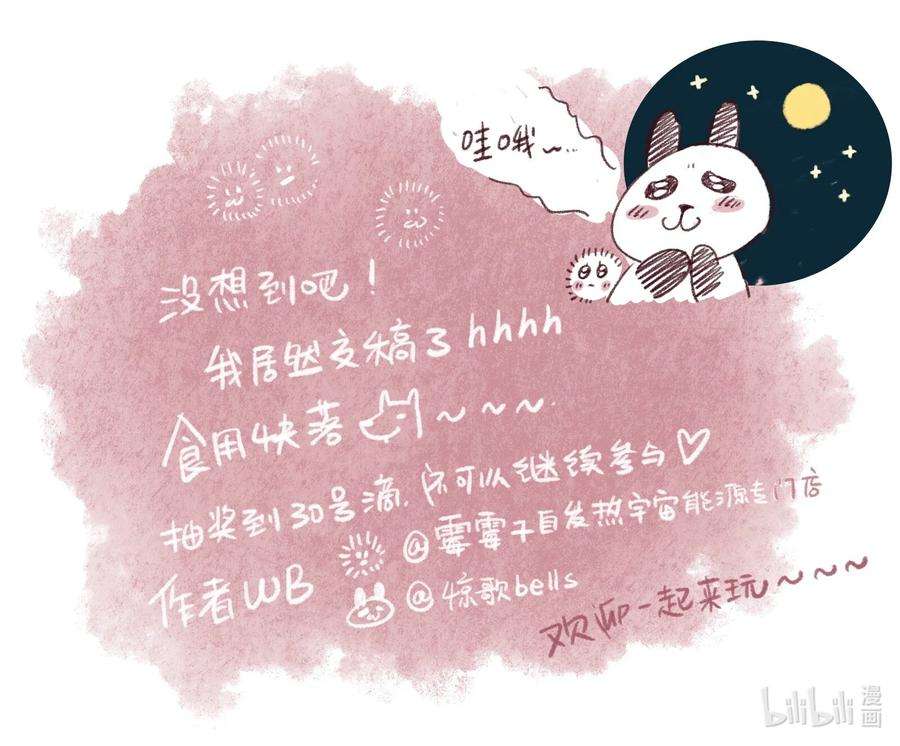 哇哦~...
没想到吧！
我居然交稿了hhhh
食用快落~~~
抽奖到30号滴，你可以继续参与♡
作者WB
@霉霉子自发热宇宙能源专门店
@惊歌bells
欢迎一起来玩~~~
bilibili漫画